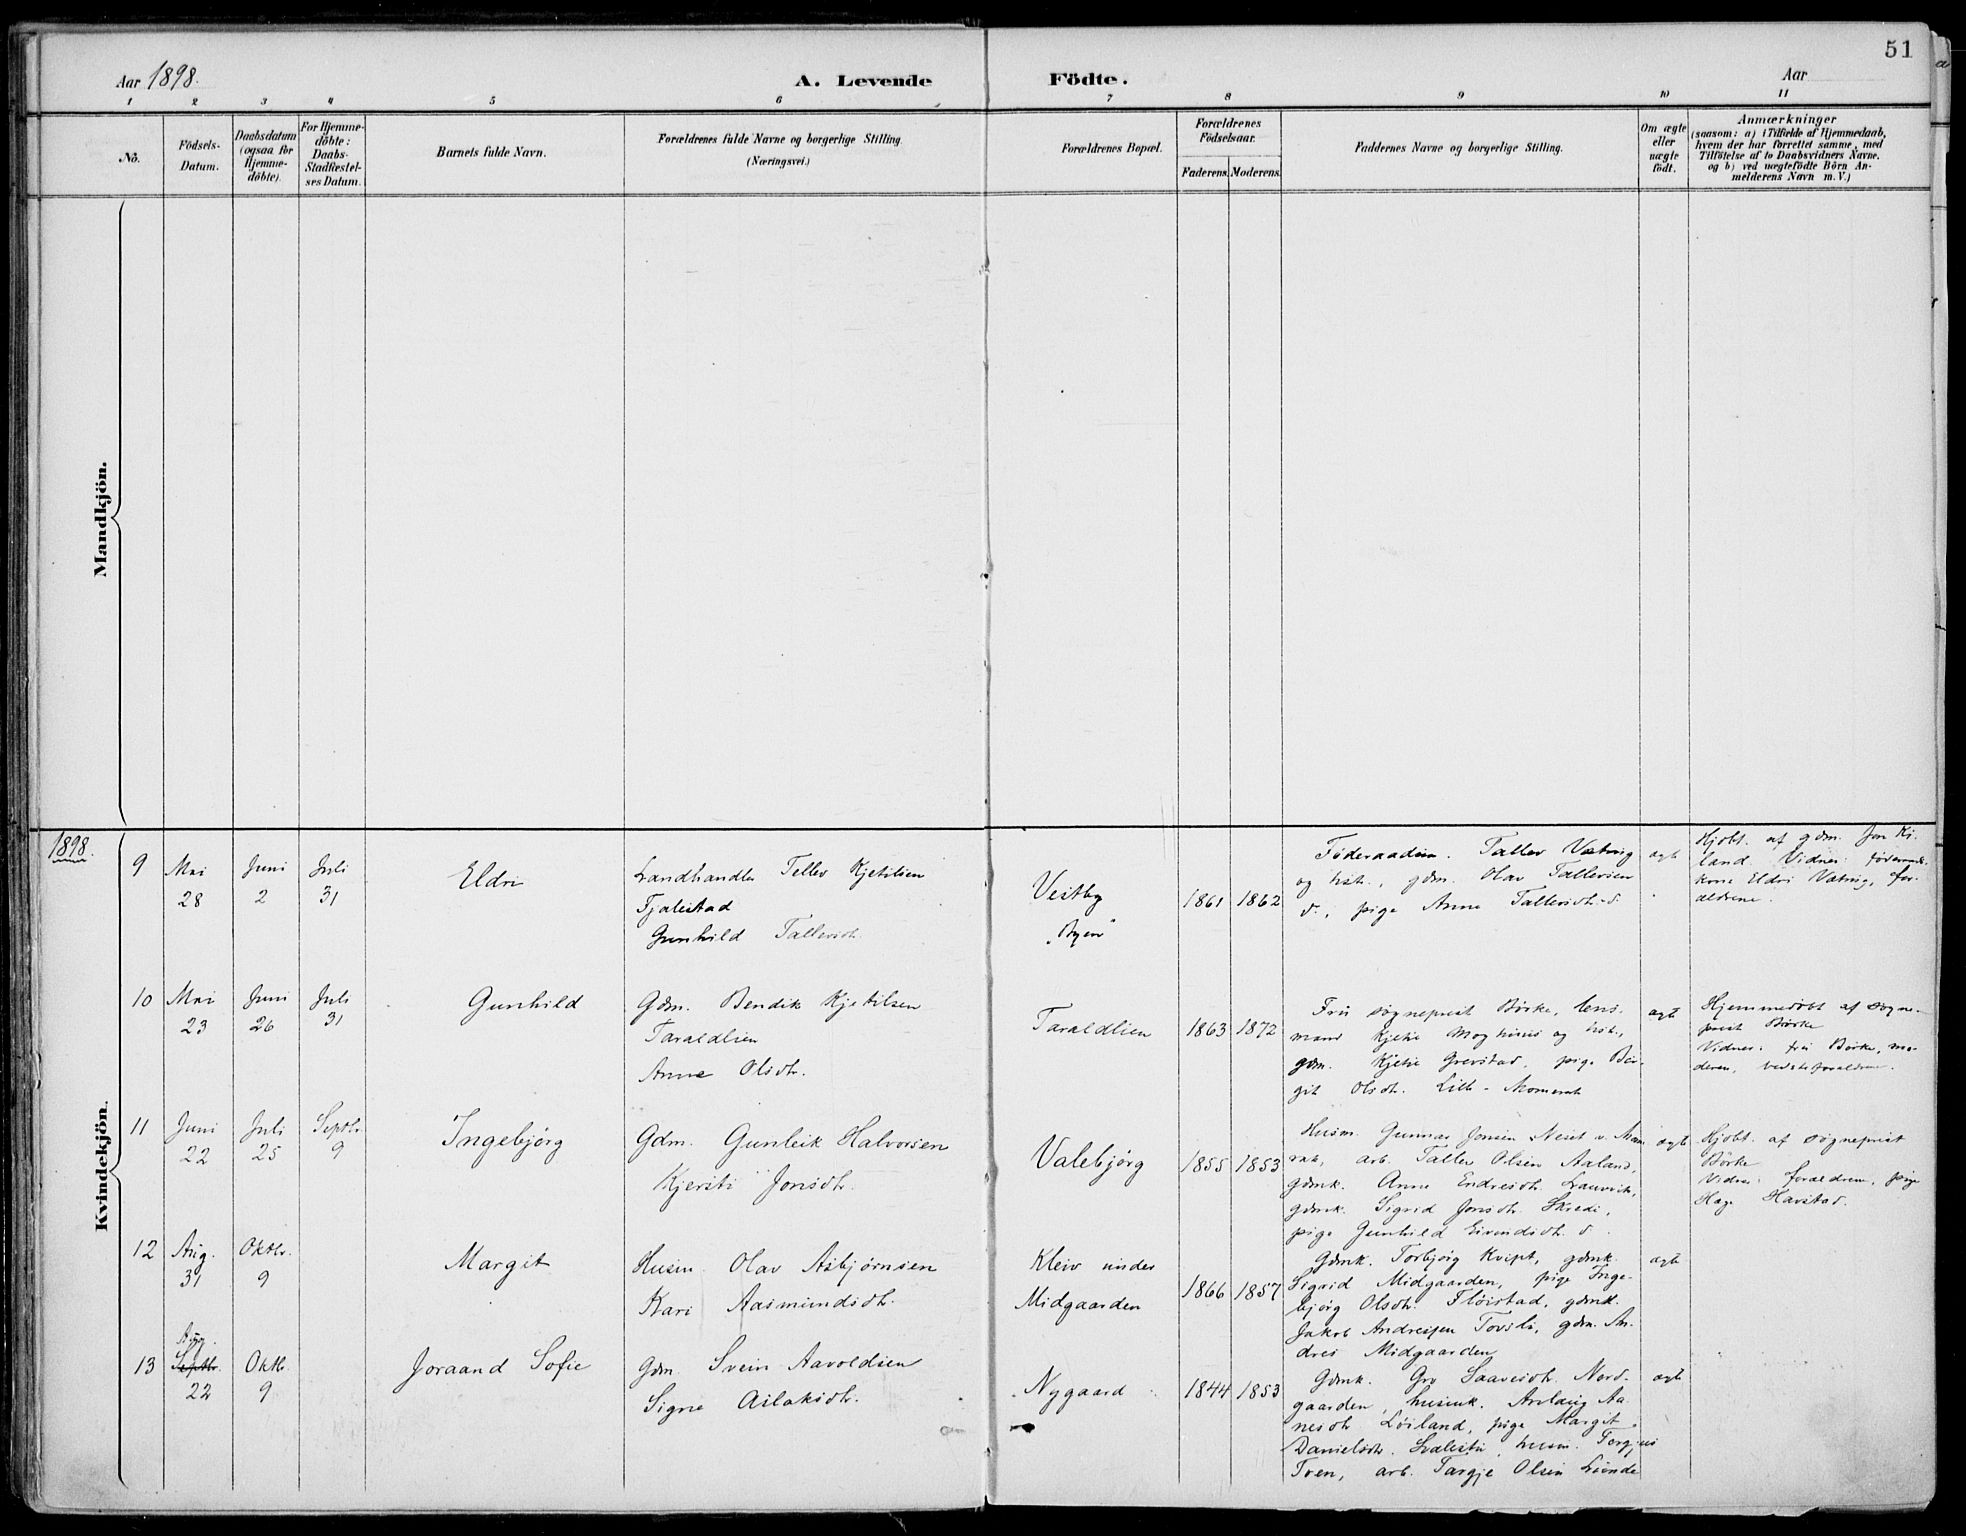 51
Aar 1898.
A. Levende Födte.
Aar
1 2 3 4 5 6 7 8 9 10 11
No.
Födsels-
Datum.
Daabsdatum
(ogsaa for
Hjemme-
döbte).
For Hjemme-
döbte:
Daabs-
Stadfæstel-
ses Datum.
Barnets fulde Navn.
Forældrenes fulde Navne og borgerlige Stilling.
(Næringsvei.)
Forældrenes Bopæl.
Forældrenes
Födselsaar.
Faderens. Moderens.
Faddernes Navne og borgerlige Stilling.
Om ægte
eller
uægte
födt.
Anmærkninger
(saasom: a) i Tilfælde af Hjemmedaab,
hvem der har forrettet samme, med
Tilföielse af to Daabsvidners Navne,
og b) ved uægtefödte Börn An-
melderens Navn m. V.)
Mandkjön.
Kvindekjön.
1898.
9
Mai
28
Juni
2
Juli
31
Eldri
Landhandler Tellev Kjetilsen
Fjalestad
Gunhild Tallevsdtr.
Vestby
"Byen"
1861 1862
Föderaadsm. Tallev Vatnig
og hst., gdm. Olav Tallevsen
d., pige Anne Tallevsdtr. d.
ægte
Hjdbt. af gdm. Jon
land. Vidner:
kone Eldri Vatnig, for-
ældrene.
10
Mai
23
Juni
26
Juli
31
Gunhild
Gdm. Bendik Kjetilsen
Taraldlien
Anne Olsdtr.
Taraldlien
1863 1872
Fru sogneprest Börke, lens-
mand Kjetil Moghus og hst.,
gdm. Kjetil Grevstad, pige Bir-
git Olsdtr. Lille-
ægte
Hjemmedöbt af sogne-
prest Börke
Vidner: fru Börke, mo-
deren,
11
Juni
22
Juli
25
Septbr.
9
Ingebjörg
Gdm. Gunleik Halvorsen
Kjersti Jonsdtr.
Valebjörg
1855 1853
Husm. Gunnar Jonsen
arb. Tallev Olsen Aaland,
gdmk. Anne Endresdtr. Lauvvik,
gdmk. Sigrid Jonsdtr. Skredi,
pige Gunhild Eivendsdtr. d.
ægte
Hjdbt. af sogneprest
Börke
Vidner: forældrene, pige
Hæge Havstad.
12
Aug.
31
Oktbr.
9
Margit
Husm. Olav Asbjørnsen
Kari Aasmundsdtr.
Kleiv under
Midgaarden
1866 1857
Gdmk. Torbjörg Kvipt, gdmk.
Sigrid Midgaarden, pige Inge-
björg Olsdtr. Flöistad, gdmk.
Jakob Andresen Tovsli, gdm. An-
dres Midgaarden
ægte
13
Aug.
Septbr.
22
Oktbr.
9
Joraand Sofie
Gdm. Svein Aavoldsen
Signe Aslaksdtr.
Nygaard
1844 1853
Gdmk. Gro Saavesdtr. Nord-
gaarden, husmk. Aslaug Aa-
nesdtr. Löiland, pige Margit
Danielsdtr. husm. Torgjus
Tven, arb. Targje Olsen Lövnde
ægte